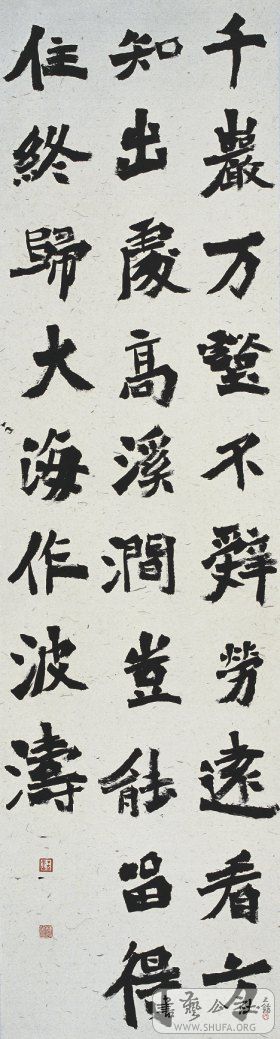 千巖万壑不辭勞遠看方
知出處高溪澗豈能留得
住終歸大海作波濤
書藝公社
WWW.SHUFA.ORG